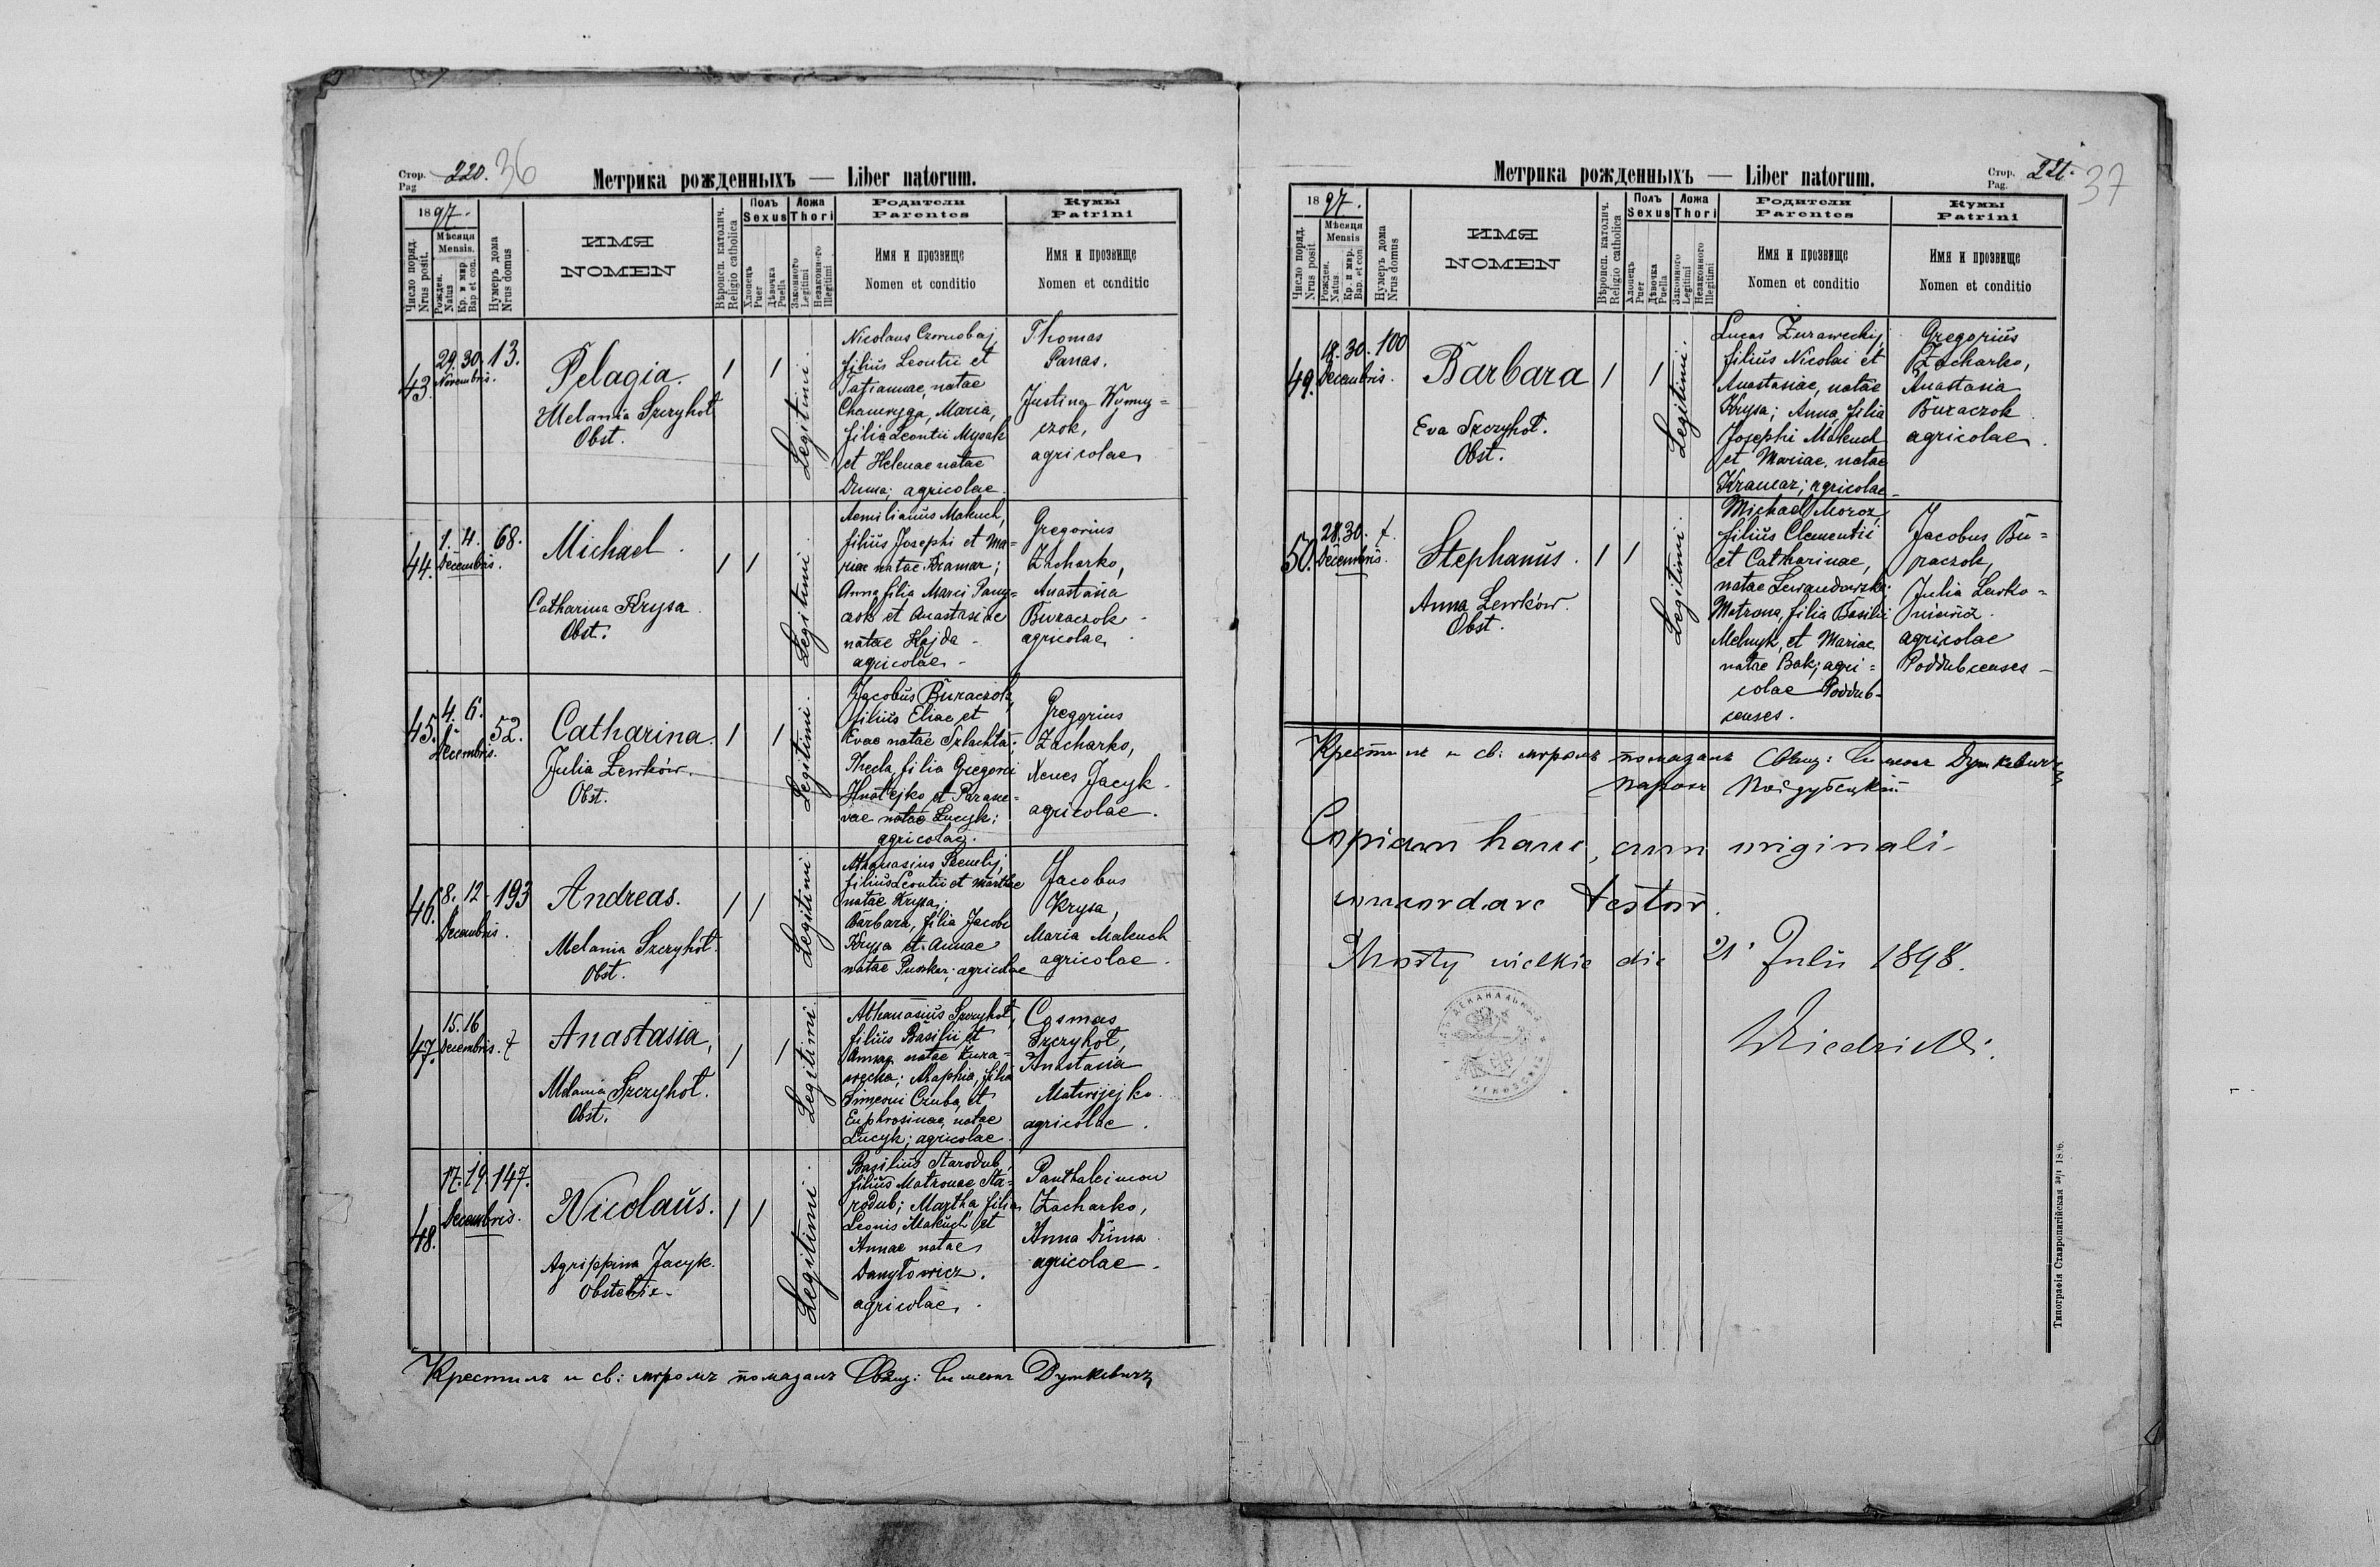 Стор. Pag 220. 36
Метрика рожденныхъ — Liber natorum.
1897.
Число поряд. Nrus posit.
Мѣсяця Mensis.
Рожден. Natus
Кр. и мир. Bap et con.
Нумеръ дома Nrus domus
ИМЯ NOMEN
Вѣроисп. католич. Religio catholica
Полъ Sexus
Хлопецъ Puer
Дѣвочка Puella
Ложа Thori
Законного Legitimi
Незаконного Illegitimi
Родители Parentes
Имя и прозвище
Nomen et conditio
Кумы Patrini
Имя и прозвище
Nomen et conditio
43. 29. 30. Novembris. 13.
Pelagia.
Melania Szczyhot
Obst.
1 1
Legitimi.
Nicolaus Czornobaj
filius Leontii et
Tatiannae, natae
Maria,
filia Leontii Mysak
et Helenae natae
Duma; agricolae.
Thomas
Panas.
Justina
czok,
agricolae
44. 1. 4. Decembris. 68.
Michael.
Catharina Krysa.
Obst.
1 1
Legitimi.
Aemilianus Makuch,
filius Josephi et Ma=
riae natae Kramar;
Anna filia Marci
et Anastasiae
natae Hajda -
agricolae -
Gregorius
Zacharko,
Anastasia
Buraczok -
agricolae
45. 4. 6. Decembris. 52.
Catharina.
Julia Lewków.
Obst.
1 1
Legitimi.
Jacobus Buraczok,
filius Eliae et
Evae natae Szlachta;
Thecla, filia Gregorii
Hnatejko et Parasce=
vae natae Lucyk;
agricolae.
Gregorius
Zacharko,
Xenes Jacyk.
agricolae.
46. 8. 12. Decembris. 193
Andreas.
Melania Szczyhot.
Obst.
1 1
Legitimi.
Athanasius
filius Leontii et Marthae
natae Krysa;
Barbara, filia Jacobi
Krysa et Annae
natae agricolae
Jacobus
Krysa,
Maria Makuch
agricolae.
47. 15. 16 Decembris. t
Anastasia,
Melania Szczyhot.
Obst.
1 1
Legitimi.
Athanasius Szczyhot,
filius Basilii et
Annae, natae Zura=
wecka; filia
Simeoni Czuba, et
Euphrosinae, natae
Lucyk; agricolae.
Cosmas
Szczyhot,
Anastasia
Matwijejko.
agricolae.
48. 17. 19. Decembris. 147.
Nicolaus.
Agrippina Jacyk.
Obstetrix.
1 1
Legitimi.
Basilius Starodub,
filius Matronae Sta=
rodub; Martha, filia
Leonis Makuch et
Annae natae
Danyłowicz.
agricolae.
Panthaleimon
Zacharko,
Anna Duma
agricolae.
Крестилъ и св: мѵромъ помазалъ Симеонъ Дуткевичъ
Стор. Pag. 221. 37
Метрика рожденныхъ — Liber natorum.
1897.
Число поряд. Nrus posit.
Мѣсяця Mensis
Рожден. Natus.
Кр. и мир. Bap. et con
Нумеръ дома Nrus domus
ИМЯ NOMEN
Вѣроисп. католич. Religio catholica
Полъ Sexus
Хлопецъ Puer
Дѣвочка Puella
Ложа Thori
Законного Legitimi
Незаконного Illegitimi
Родители Parentes
Имя и прозвище
Nomen et conditio
Кумы Patrini
Имя и прозвище
Nomen et conditio
49. 18. 30. Decembris. 100
Barbara
Eva Szczyhot.
Obst.
1 1
Legitimi.
Lucas Zurawechij,
filius Nicolai et
Anastasiae, natae
Krysa; Anna, filia
Josephi Makuch
et Mariae, natae
Kramar; agricolae -
Gregorius
Zacharko,
Anastasia
Buraczok
agricolae.
50. 28. 30. Decembris. t.
Stephanus.
Anna Lewków.
Obst.
1 1
Legitimi.
Michael Moroz,
filius Clementii
et Catharinae,
natae Lewandowzka;
Matrona, filia Basilii
Melnyk, et Mariae
natae Bak; agri=
colae Poddub-
censes.
Jacobus Bu=
raczok,
Julia Lewko=
niewicz.
agricolae
Poddubcenses -
Крестилъ и св: мѵромъ помазалъ Симеонъ Дуткевичъ
парохъ Поддубецкій
Copiam hanc, cum originali
concordare testor.
Mosty wielkie die 21 Julii 1898.
ДЕКАНАЛЬНЫЙ
Типографія Ставропигійская